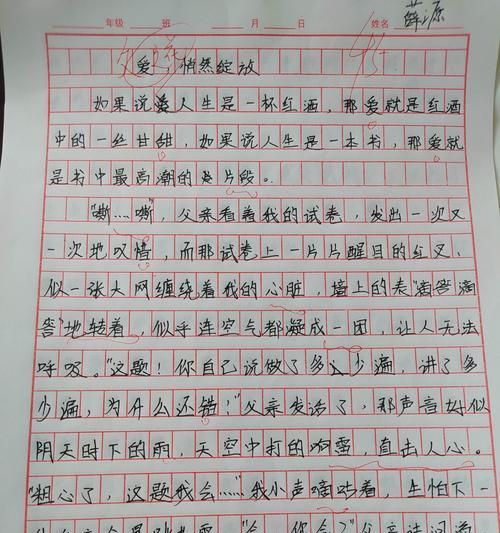 年级 班 月 日 姓名 薛源
父爱 悄然绽放 45
如果说爱人生是一杯红酒，那爱就是红酒
中的一丝甘甜，如果说人生是一本书，那爱就
是书中最高潮的片段。
“嘶…嘶”，父亲看着我的试卷，发出一次又
一次地叹惜，而那试卷上一片片醒目的红叉，
似一张大网缠绕着我的心脏，墙上的表“滴答滴
答”地转着，似乎连空气都凝成一团，让人无法
呼吸。“这题！你自己说做了多少遍，讲了多
少遍，为什么还错！”父亲发话了，那声音好似
阴天时下的雨，天空中打的响雷，直击人心。
“粗心了，这题我会……”我小声嘀咕着，生怕下一
你会了”父亲